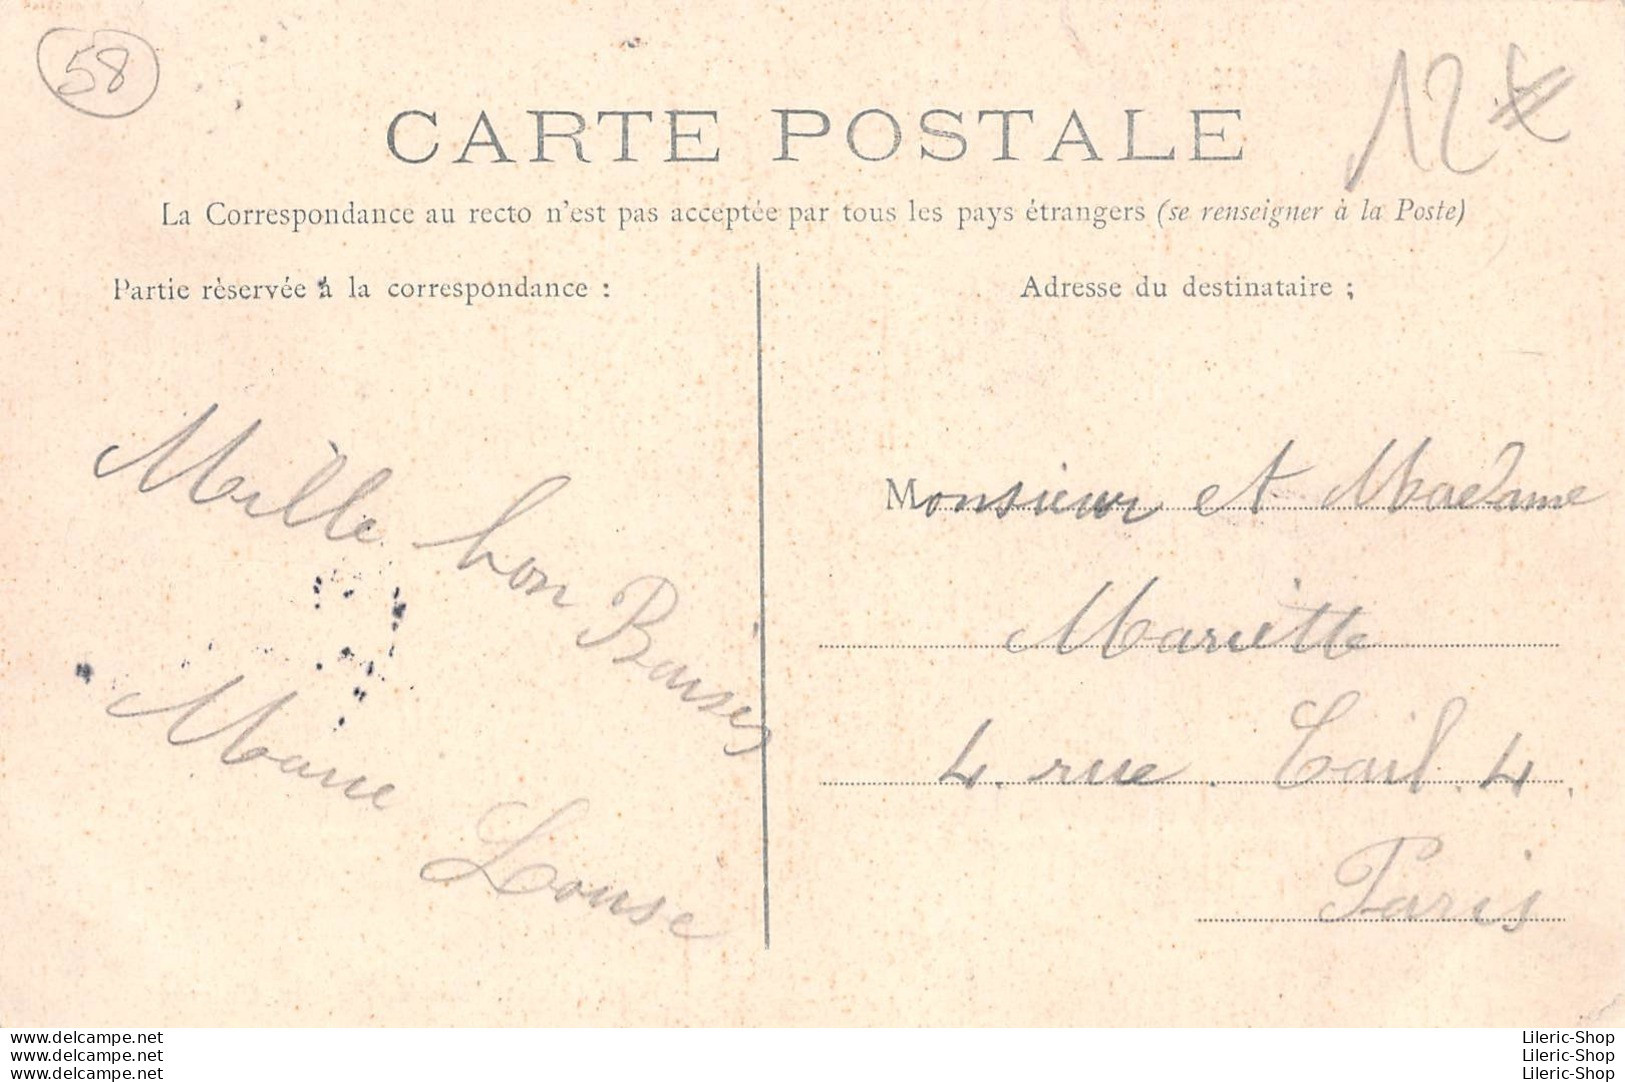 58
12 €
CARTE POSTALE
La Correspondance au recto n'est pas acceptée par tous les pays étrangers (se renseigner à la Poste)
Partie rèservée à la correspondance :
Adresse du destinataire ;
Mille bon Baisers
Marie Louise
Monsieur et Madame
Mariette
4. rue. Cail. 4.
Paris
www.delcampe.net
www.delcampe.net
www.delcampe.net
Lileric-Shop
Lileric-Shop
Lileric-Shop